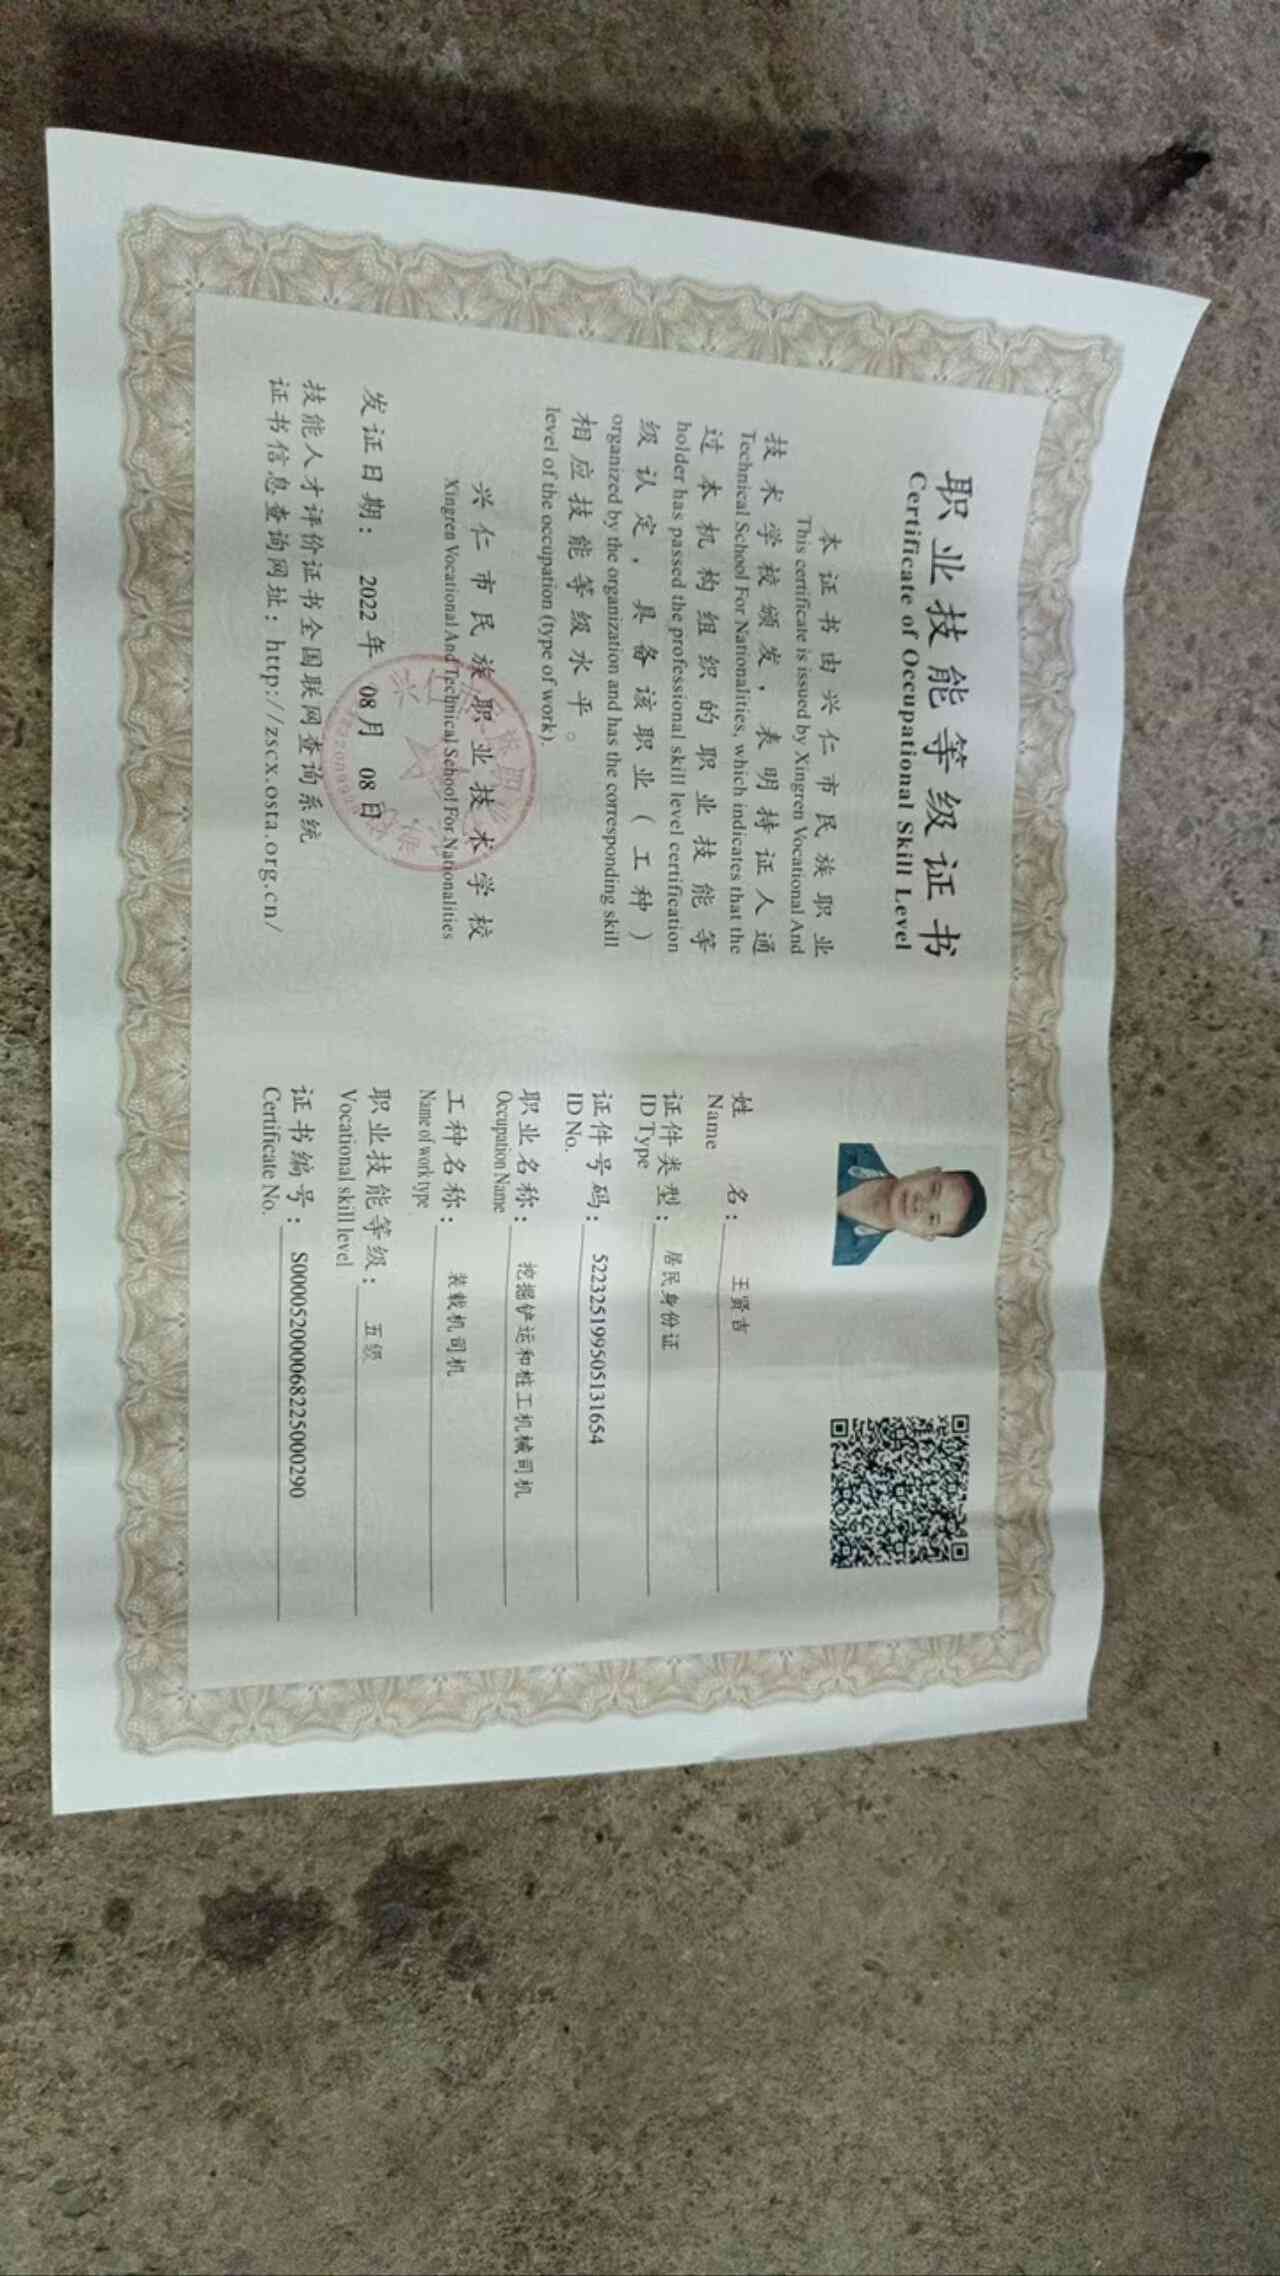 职业技能等级证书
Certificate of Occupational Skill Level
本证书由兴仁市民族职业
This certificate is issued by Xingren Vocational And
技术学校颁发，表明持证人通
Technical School For Nationalities, which indicates that the
过本机构组织的职业技能等
holder has passed the professional skill level certification
级认定，具备该职业（工种）
organized by the organization and has the corresponding skill
相应技能等级水平。
level of the occupation (type of work).
兴仁市民族职业技术学校
Xingren Vocational And Technical School For Nationalities
发证日期： 2022 年 08 月 08 日
技能人才评价证书全国联网查询系统
证书信息查询网址：http://zscx.osta.org.cn/
姓 名： 王贤吉
Name
证件类型： 居民身份证
ID Type
证件号码： 522325199505131654
ID No.
职业名称： 挖掘铲运和桩工机械司机
Occupation Name
工种名称： 装载机司机
Name of work type
职业技能等级： 五级
Vocational skill level
证书编号： S000052000068225000290
Certificate No.